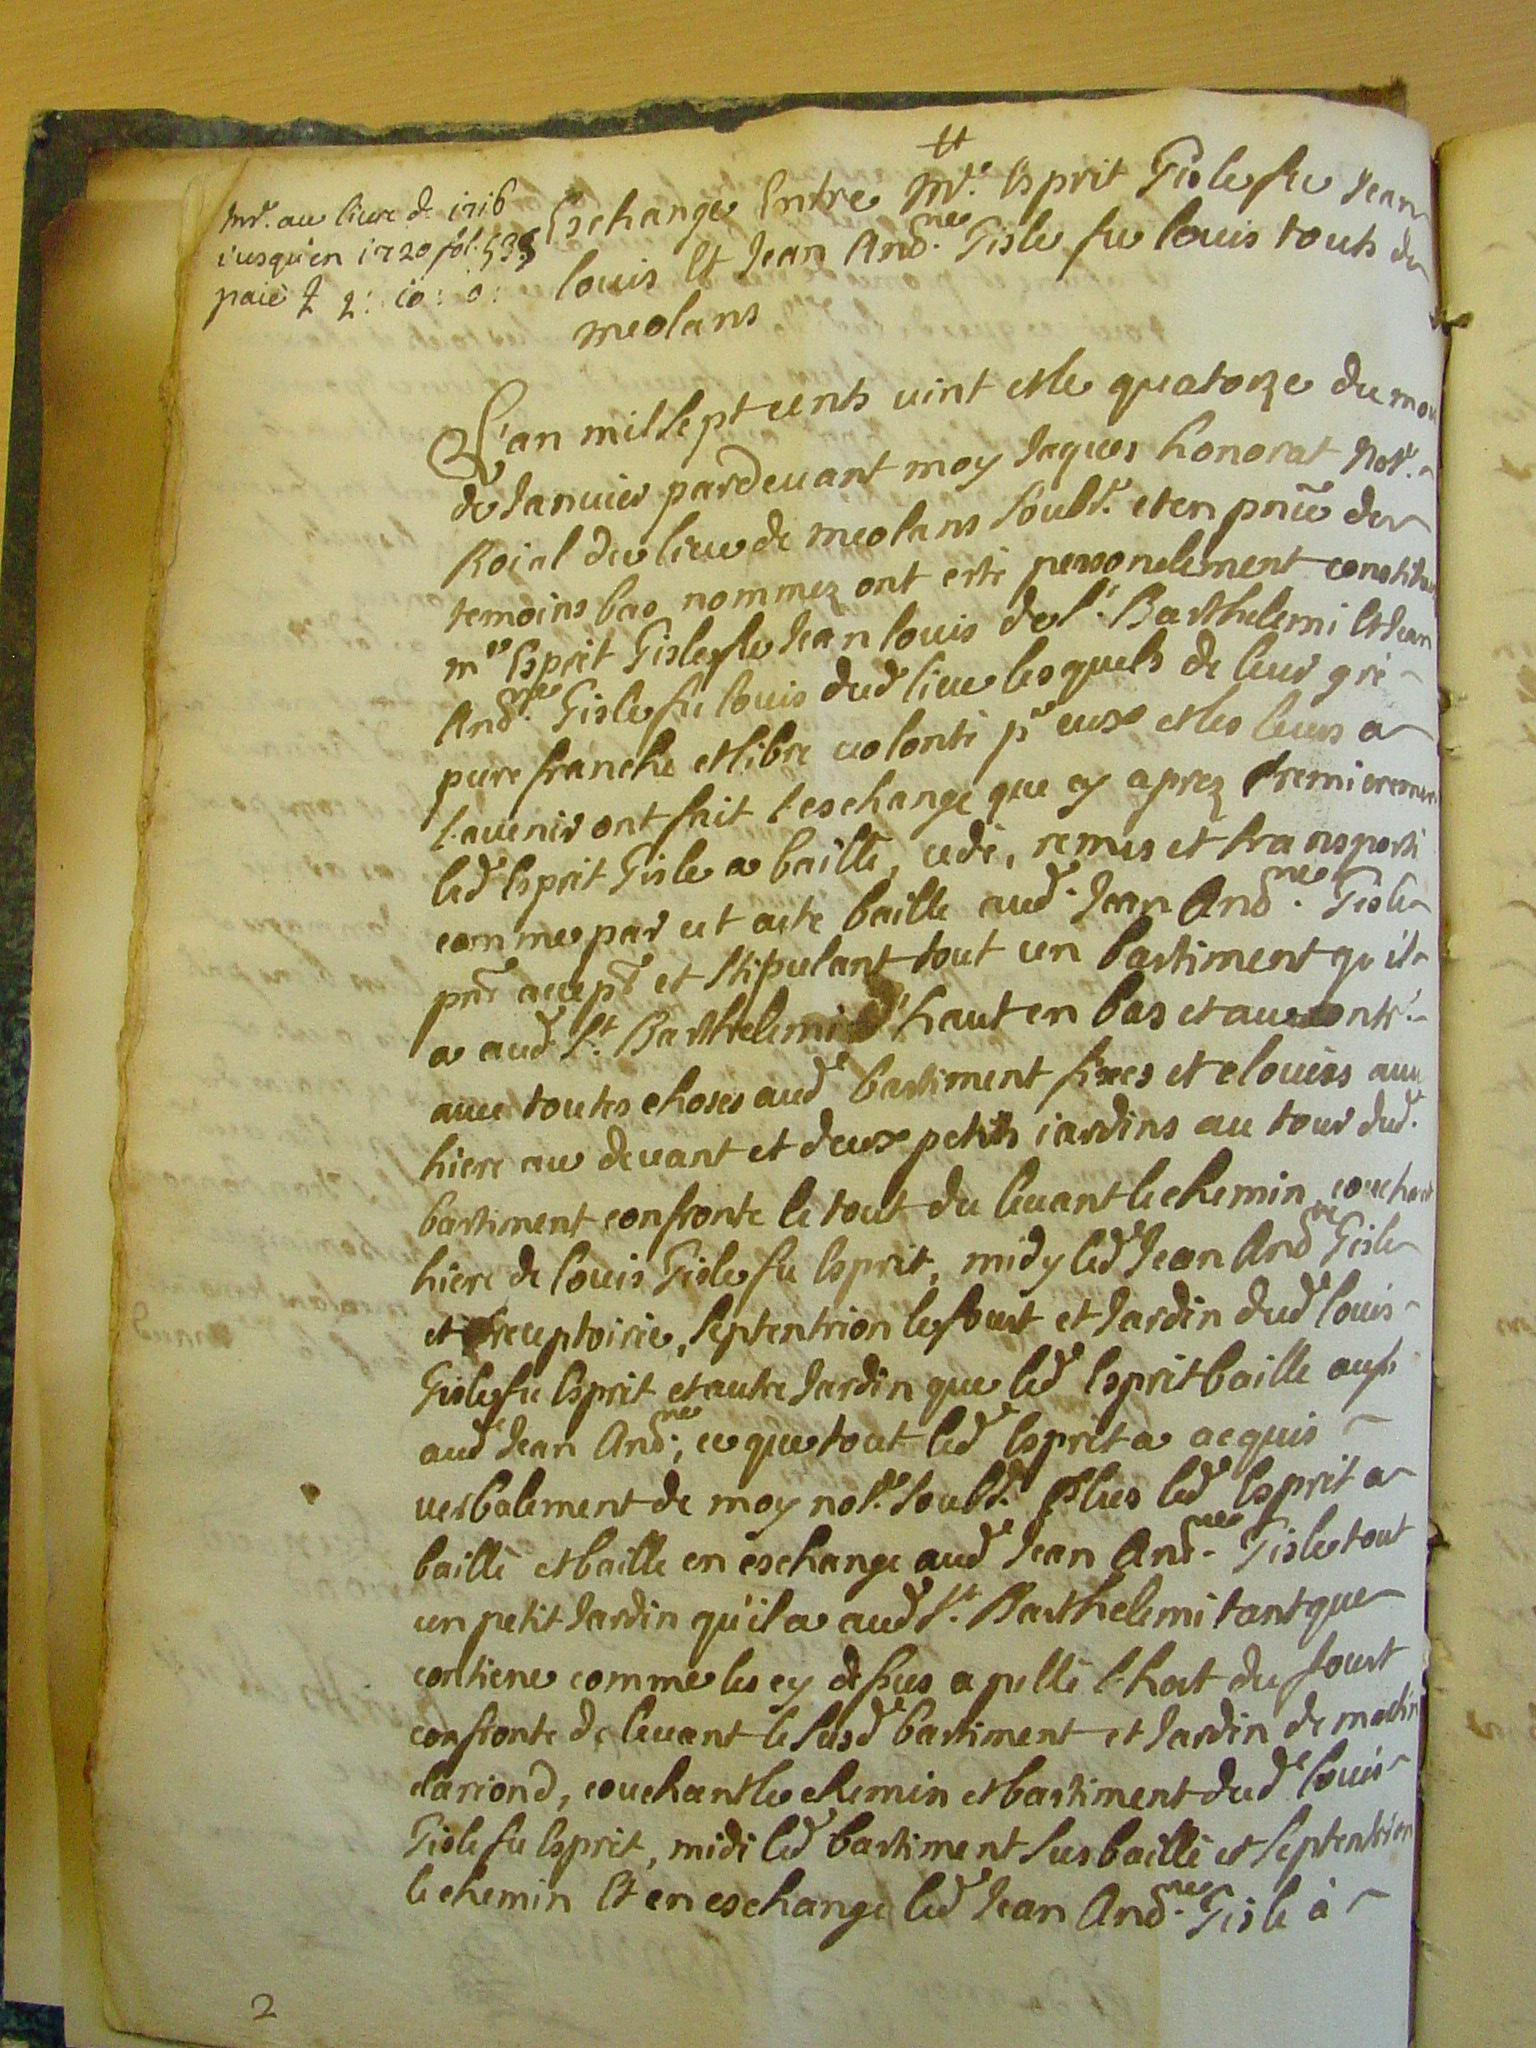 Inr.e au livre de 1716
iusqu'en 1720 fol. 535
paié # 2: 10: 0:
Eschange Entre M.e Esprit Gisle fu Jean
louis Et Jean And.ne Gisle fu louis touts de
meolans
L'an mil sept cents vint et le quatorze du mois
de Januier pardeuant moy Jaques honorat Not.e
Roial du lieu de meolans soubs.e et en pnce des
temoins bas nommez ont esté personelement constitués
m.e Esprit Gisle fu Jean louis de s.t Barthelemi Et Jean
And.ne Gisle fu louis dud lieu lesquels de leur gré
pure franche et libre volonté p.r eux et les leurs a
l'auenir ont fait l'eschange que cy aprez Premierement
led Esprit Gisle a baillé, cedé, remis et transporté
comme par cet acte baille aud. Jean And.ne Gisle
pnt accept et stipulant tout un bastiment qu'il
a aud. s.t Barthelemi d'haut en bas et au contr.e
auec toutes choses aud bastiment fixes et clouées auec
hiere au deuant et deux petits iardins au tour dud.
bastiment confronte le tout du leuant le chemin, couchant
hiere de louis Gisle fu Esprit, midy led Jean And.ne Gisle
et Preceptoirie, septentrion le fourt et Jardin dud louis
Gisle fu Esprit et autre Jardin que led Esprit baille aussi
aud Jean And.ne; ce que tout led Esprit a acquis
verbalement de moy not.e soubs.e Plus led Esprit a
baillé et baille en eschange aud Jean And.ne Gisle tout
un petit Jardin qu'il a aud s.t Barthelemi tant que
contiene comme les cy dessus apellé l'hort du fourt
confronte de leuant le susd bastiment et Jardin de martin
clariond, couchant le chemin et bastiment dud louis
Gisle fu Esprit, midi led bastiment sus baillé et septentrion
le chemin Et en eschange led Jean And.ne Gisle à
2